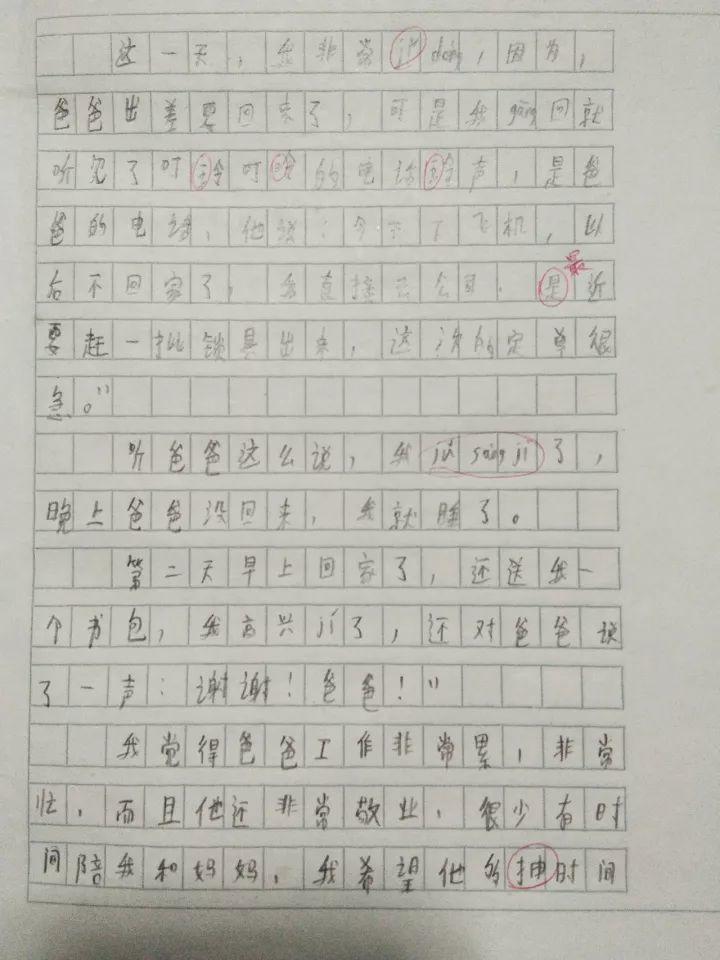 这一天，我非常jīdòng，因为，
爸爸出差要回来了，可是我gāng回就
听见了叮铃叮铃的电话铃声，是爸
爸的电话，他说：今天下了飞机，以
后不回家了，我直接去公司，是最近
要赶一批锁具出来，这次的定单很
急。”
听爸爸这么说，我jǔ sàng jí了，
晚上爸爸没回来，我就睡了。
第二天早上回家了，还送我一
个书包，我高兴jí了，还对爸爸说
了一声：谢谢！爸爸！”
我觉得爸爸工作非常累，非常
忙，而且他还非常敬业，很少有时
间陪我和妈妈，我希望他多抽时间